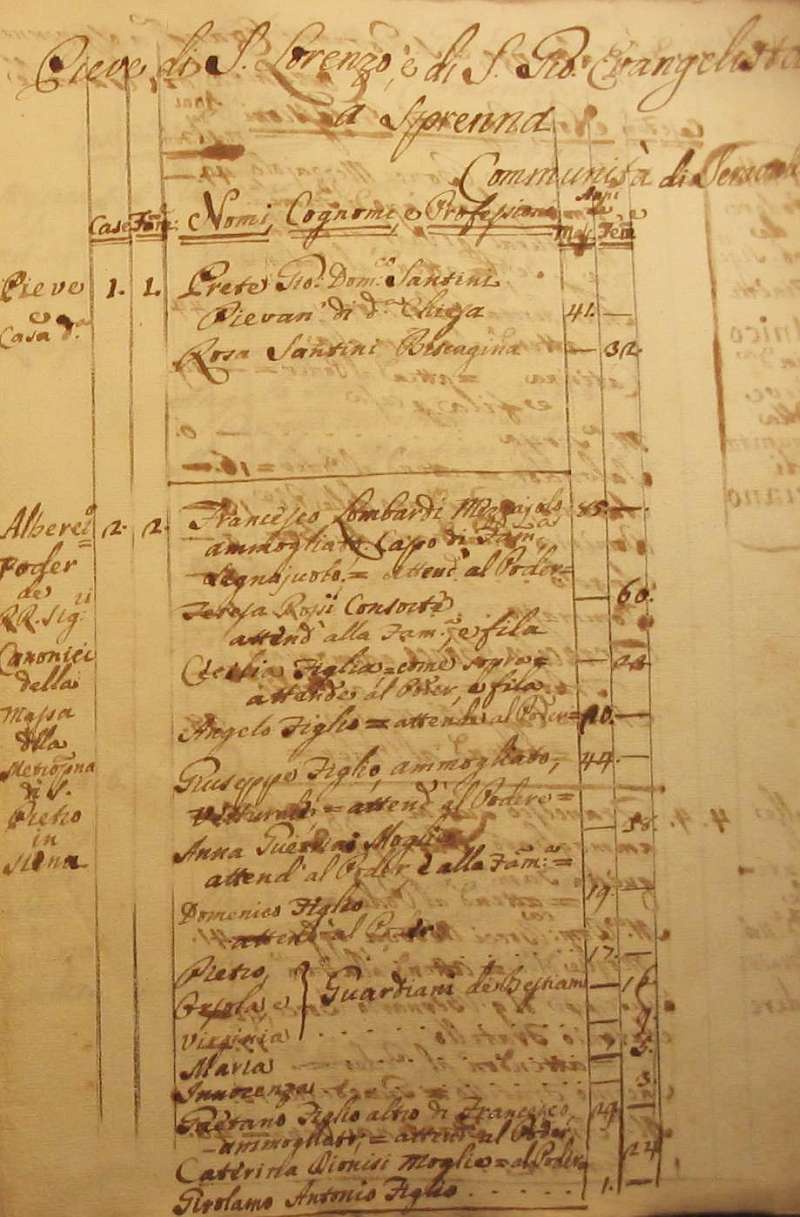 Pieve di S. Lorenzo, e di S. Gio: Evangelista
a Sprenna
Communità di
Case Fam: Nomi, Cognomi, e Professioni Anni
Mas. Fem.
Pieve 1. 1. Prete Gio: Dom:co Santini
Casa d.a Pievan: di d.a Chiesa 41. —
Rosa Santini — 32.
Alberei 2. 2. Francesco Lombardi Mezzajolo 85. —
ammogliato Capo di Fam:
Poder Legnajuolo = attend' al Poder=
de
RR. Sig:ri Teresa Rossi Consorte — 60.
attend' alla Fam:, e fila
Canonici Cecilia Figlia = come sopra =
della attende al Poder, e fila
Massa Angelo Figlio = attende al Poder= —
della
Metropna Giuseppe Figlio, ammogliato, 44. —
di S. = attend' al Podere =
Pietro Anna Moglie
in attend' al Poder e alla Fam: =
Siena
Domenico Figlio 19. —
attend' al Poder
Pietro, 17. —
Orsola e Guardiani de Bestiam — 16
Virginia
Maria — 5.
Innocenza — 3.
Gaetano Figlio altro di Francesco, 29. —
ammogliato, = attend' al Poder,
Caterina Dionisi Moglie = al Poder — 24
Girolamo Antonio Figlio 1. —